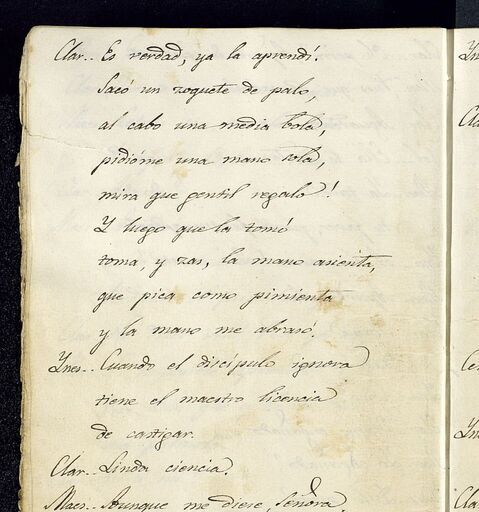 Clar.. Es verdad, ya la aprendí.
Sacó un zoquete de palo,
al cabo una media bola,
pidióme una mano sola,
mira que gentil regalo!
Y luego que la tomó
toma, y zas, la mano asienta,
que pica como pimienta
y la mano me abrasó.
Ynes.. Cuando el discípulo ignora
tiene el maestro licencia
de castigar.
Clar.. Linda ciencia.
Maes.. Aunque me diere, Señora,